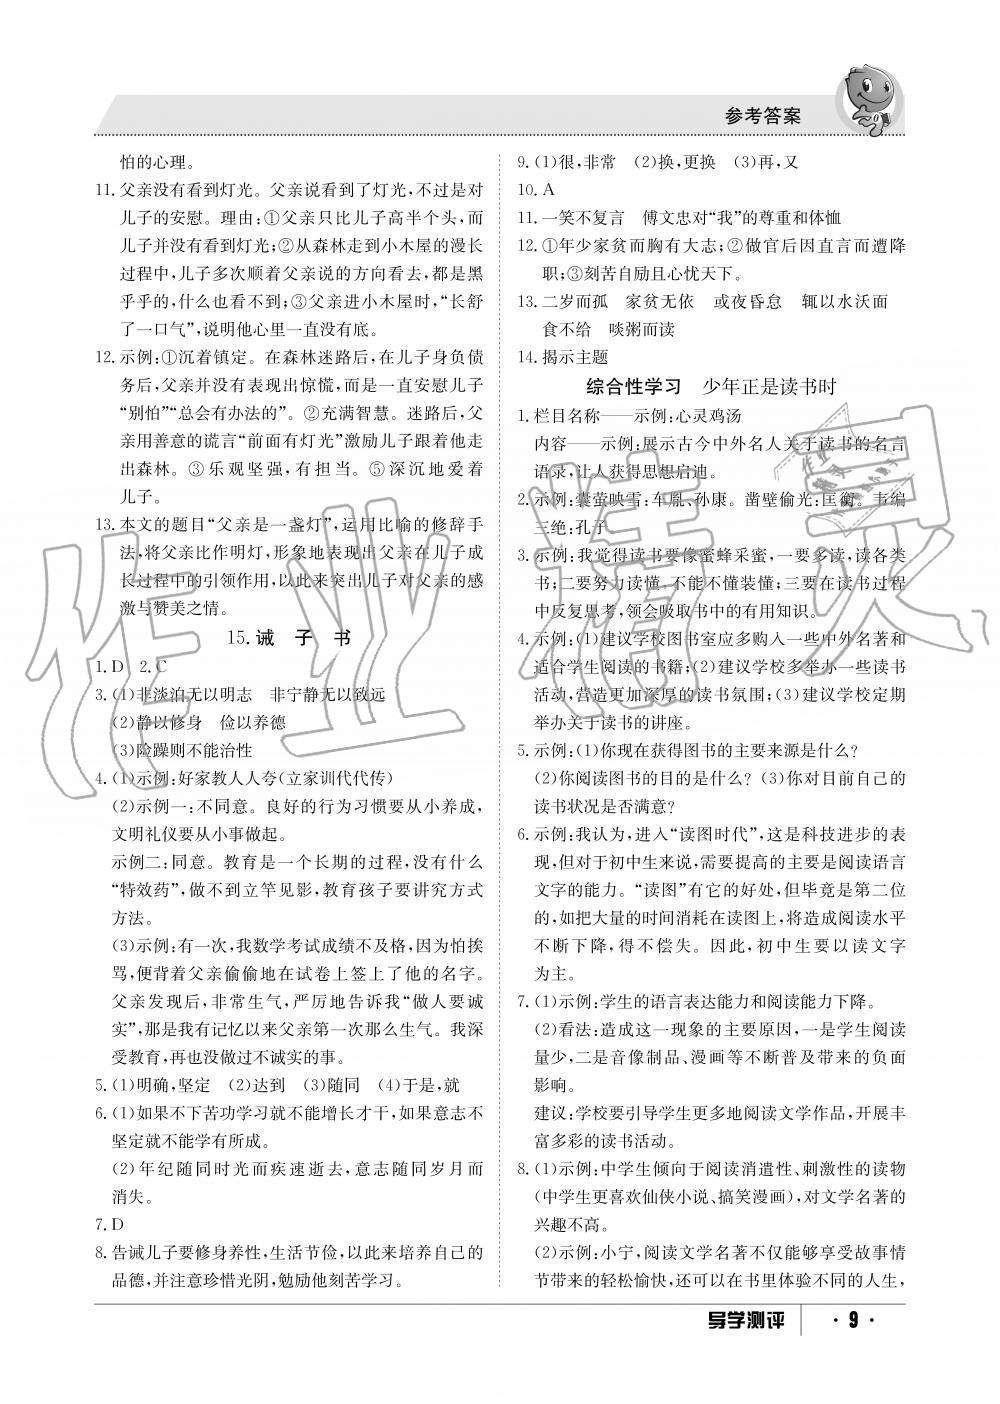 参考答案
怕的心理。
11.父亲没有看到灯光。父亲说看到了灯光,不过是对
儿子的安慰。理由:①父亲只比儿子高半个头,而
儿子并没有看到灯光;②从森林走到小木屋的漫长
过程中,儿子多次顺着父亲说的方向看去,都是黑
乎乎的,什么也看不到;③父亲进小木屋时,“长舒
了一口气”,说明他心里一直没有底。
12.示例:①沉着镇定。在森林迷路后,在儿子身负债
务后,父亲并没有表现出惊慌,而是一直安慰儿子
“别怕”“总会有办法的”。②充满智慧。迷路后,父
亲用善意的谎言“前面有灯光”激励儿子跟着他走
出森林。③乐观坚强,有担当。⑤深沉地爱着
儿子。
13.本文的题目“父亲是一盏灯”,运用比喻的修辞手
法,将父亲比作明灯,形象地表现出父亲在儿子成
长过程中的引领作用,以此来突出儿子对父亲的感
激与赞美之情。
15.诫 子 书
1.D 2.C
3.(1)非淡泊无以明志 非宁静无以致远
(2)静以修身 俭以养德
(3)险躁则不能治性
4.(1)示例:好家教人人夸(立家训代代传)
(2)示例一:不同意。良好的行为习惯要从小养成,
文明礼仪要从小事做起。
示例二:同意。教育是一个长期的过程,没有什么
“特效药”,做不到立竿见影,教育孩子要讲究方式
方法。
(3)示例:有一次,我数学考试成绩不及格,因为怕挨
骂,便背着父亲偷偷地在试卷上签上了他的名字。
父亲发现后,非常生气,严厉地告诉我“做人要诚
实”,那是我有记忆以来父亲第一次那么生气。我深
受教育,再也没做过不诚实的事。
5.(1)明确,坚定 (2)达到 (3)随同 (4)于是,就
6.(1)如果不下苦功学习就不能增长才干,如果意志不
坚定就不能学有所成。
(2)年纪随同时光而疾速逝去,意志随同岁月而
消失。
7.D
8.告诫儿子要修身养性,生活节俭,以此来培养自己的
品德,并注意珍惜光阴,勉励他刻苦学习。
9.(1)很,非常 (2)换,更换 (3)再,又
10.A
11.一笑不复言 傅文忠对“我”的尊重和体恤
12.①年少家贫而胸有大志;②做官后因直言而遭降
职;③刻苦自励且心忧天下。
13.二岁而孤 家贫无依 或夜昏怠 辄以水沃面
食不给 啖粥而读
14.揭示主题
综合性学习 少年正是读书时
1.栏目名称——示例:心灵鸡汤
内容——示例:展示古今中外名人关于读书的名言
语录,让人获得思想启迪。
2.示例:囊萤映雪:车胤、孙康。凿壁偷光:匡衡。韦编
三绝:孔子
3.示例:我觉得读书要像蜜蜂采蜜,一要多读,读各类
书;二要努力读懂,不能不懂装懂;三要在读书过程
中反复思考,领会吸取书中的有用知识。
4.示例:(1)建议学校图书室应多购入一些中外名著和
适合学生阅读的书籍;(2)建议学校多举办一些读书
活动,营造更加深厚的读书氛围;(3)建议学校定期
举办关于读书的讲座。
5.示例:(1)你现在获得图书的主要来源是什么?
(2)你阅读图书的目的是什么? (3)你对目前自己的
读书状况是否满意?
6.示例:我认为,进入“读图时代”,这是科技进步的表
现,但对于初中生来说,需要提高的主要是阅读语言
文字的能力。“读图”有它的好处,但毕竟是第二位
的,如把大量的时间消耗在读图上,将造成阅读水平
不断下降,得不偿失。因此,初中生要以读文字
为主。
7.(1)示例:学生的语言表达能力和阅读能力下降。
(2)看法:造成这一现象的主要原因,一是学生阅读
量少,二是音像制品、漫画等不断普及带来的负面
影响。
建议:学校要引导学生更多地阅读文学作品,开展丰
富多彩的读书活动。
8.(1)示例:中学生倾向于阅读消遣性、刺激性的读物
(中学生更喜欢仙侠小说、搞笑漫画),对文学名著的
兴趣不高。
(2)示例:小宁,阅读文学名著不仅能够享受故事情
节带来的轻松愉快,还可以在书里体验不同的人生,
导学测评 ·9·
作业精灵